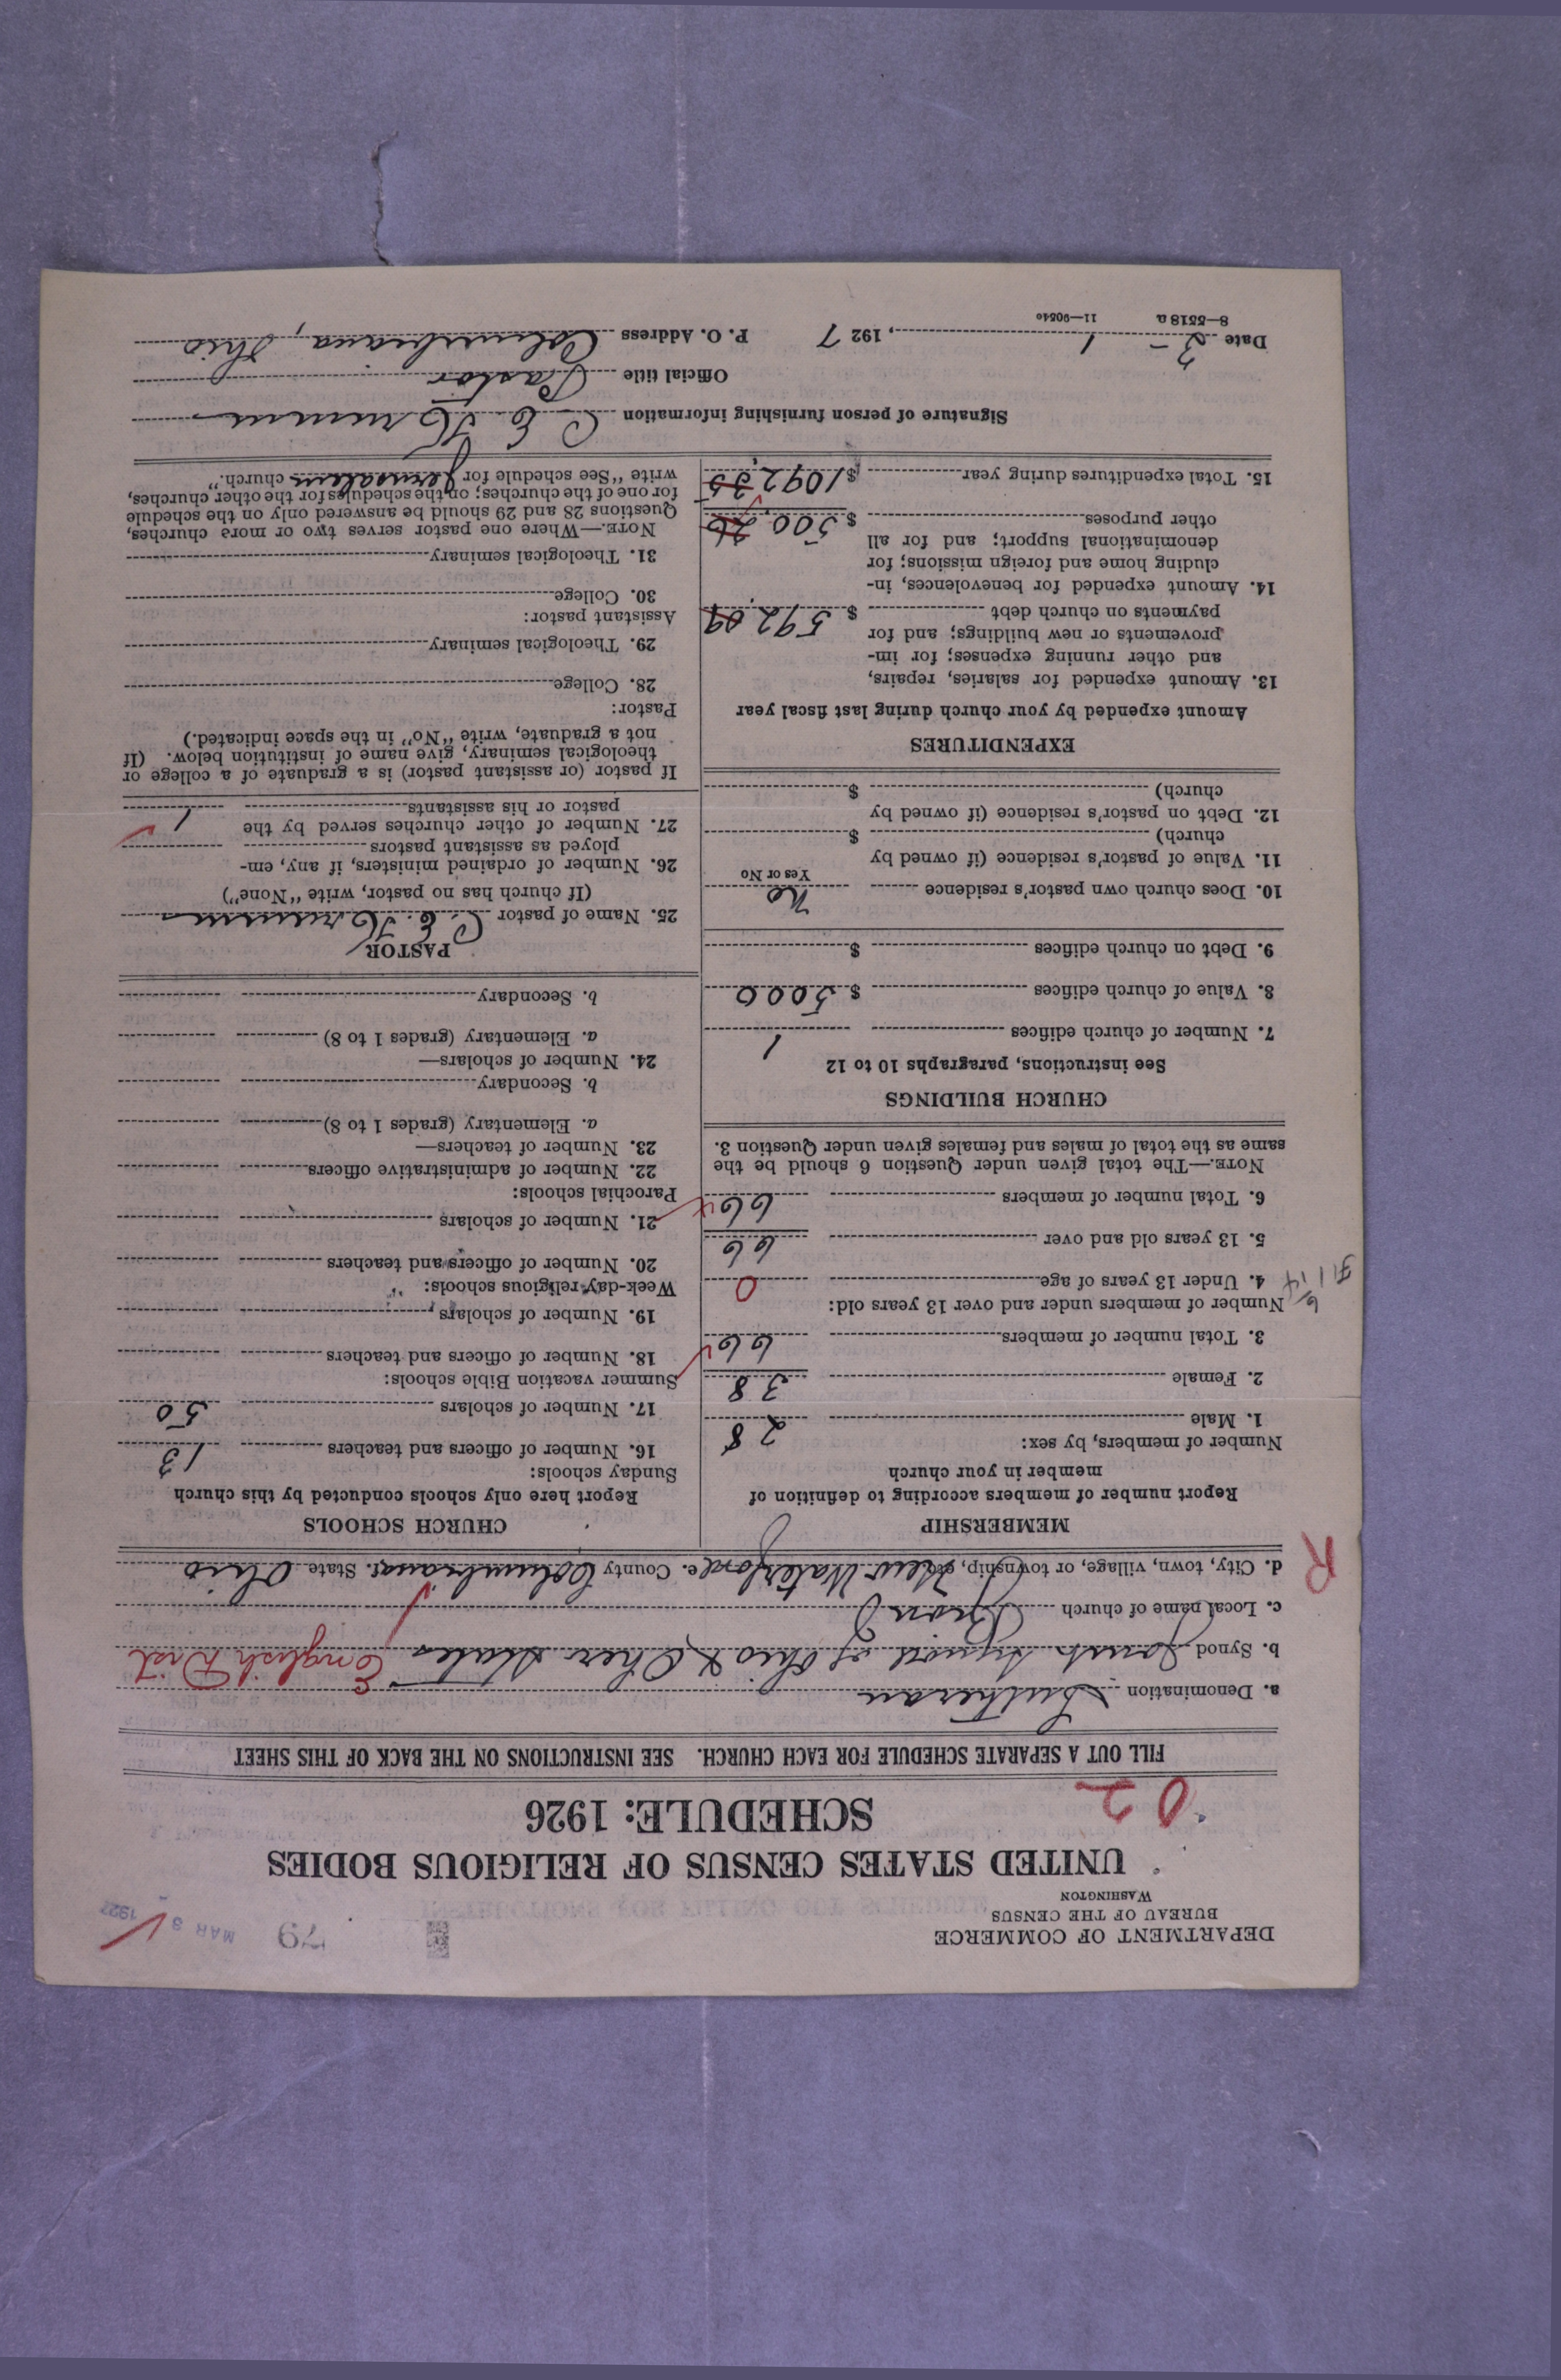 DEPARTMENT OF COMMERCE
BUREAU OF THE CENSUS
WASHINGTON
79
MAR 3 1927
UNITED STATES CENSUS OF RELIGIOUS BODIES
SCHEDULE: 1926
02
FILL OUT A SEPARATE SCHEDULE FOR EACH CHURCH. SEE INSTRUCTIONS ON THE BACK OF THIS SHEET
a. Denomination Lutheran
b. Synod Joint Synod of Ohio & Other States English Dist
c. Local name of church
d. City, town, village, or township, etc. New Waterford e. County Columbiana f. State Ohio
R
MEMBERSHIP
Report number of members according to definition of
member in your church
Number of members, by sex:
1. Male 28
2. Female 38
3. Total number of members 66
Number of members under and over 13 years old:
4. Under 13 years of age 0
5. 13 years old and over 66
6. Total number of members 66
NOTE.—The total given under Question 6 should be the
same as the total of males and females given under Question 3.
CHURCH BUILDINGS
See instructions, paragraphs 10 to 12
7. Number of church edifices 1
8. Value of church edifices $ 5000
9. Debt on church edifices $
10. Does church own pastor's residence No
Yes or No
11. Value of pastor's residence (if owned by
church) $
12. Debt on pastor's residence (if owned by
church) $
EXPENDITURES
Amount expended by your church during last fiscal year
13. Amount expended for salaries, repairs,
and other running expenses; for im-
provements or new buildings; and for
payments on church debt $ 592.09
14. Amount expended for benevolences, in-
cluding home and foreign missions; for
denominational support; and for all
other purposes $ 500.26
15. Total expenditures during year $ 1092.35
CHURCH SCHOOLS
Report here only schools conducted by this church
Sunday schools:
16. Number of officers and teachers 13
17. Number of scholars 50
Summer vacation Bible schools:
18. Number of officers and teachers
19. Number of scholars
Week-day religious schools:
20. Number of officers and teachers
21. Number of scholars
Parochial schools:
22. Number of administrative officers
23. Number of teachers—
a. Elementary (grades 1 to 8)
b. Secondary
24. Number of scholars—
a. Elementary (grades 1 to 8)
b. Secondary
PASTOR
25. Name of pastor C. E. Krumm
(If church has no pastor, write "None")
26. Number of ordained ministers, if any, em-
ployed as assistant pastors
27. Number of other churches served by the
pastor or his assistants 1
If pastor (or assistant pastor) is a graduate of a college or
theological seminary, give name of institution below. (If
not a graduate, write "No" in the space indicated.)
Pastor:
28. College
29. Theological seminary
Assistant pastor:
30. College
31. Theological seminary
NOTE.—Where one pastor serves two or more churches,
Questions 28 and 29 should be answered only on the schedule
for one of the churches; on the schedules for the other churches,
write "See schedule for Jerusalem church."
Signature of person furnishing information C. E. Krumm
Official title Pastor
Date 3-1, 1927 P. O. Address Columbiana, Ohio
8—5518 a 11—9054o